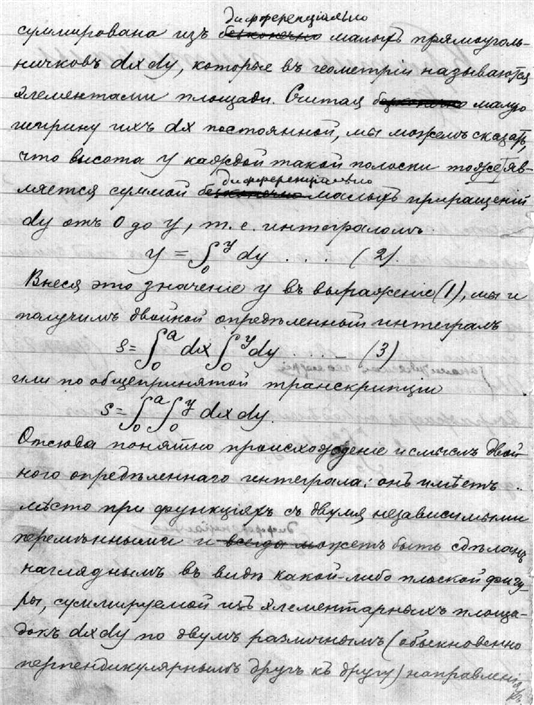 дифференціально
суммирована изъ безконечно малыхъ прямоуголь-
ничковъ dx dy, которые въ геометріи называются
элементами площади. Считая безконечно малую
ширину ихъ dx постоянной, мы можемъ сказать,
что высота y каждой такой полоски тоже яв-
дифференціально
ляется суммой безконечно малыхъ приращеній
dy отъ 0 до y, т. е. интеграломъ
y = ∫₀^y dy . . . . (2).
Внеся это значеніе y въ выраженіе (1), мы и
получимъ двойной опредѣленный интегралъ
s = ∫₀^a dx ∫₀^y dy . . . . (3)
или по общепринятой транскрипціи
s = ∫₀^a ∫₀^y dx dy.
Отсюда понятно происхожденіе и смыслъ двой-
ного опредѣленнаго интеграла: онъ имѣетъ
мѣсто при функціяхъ съ двумя независимыми
перемѣнными и всегда можетъ быть сдѣланъ
нагляднымъ въ видѣ какой-либо плоской фигу-
ры, суммируемой изъ элементарныхъ площа-
докъ dx dy по двумъ различнымъ (обыкновенно
перпендикулярнымъ другъ къ другу) направлені-